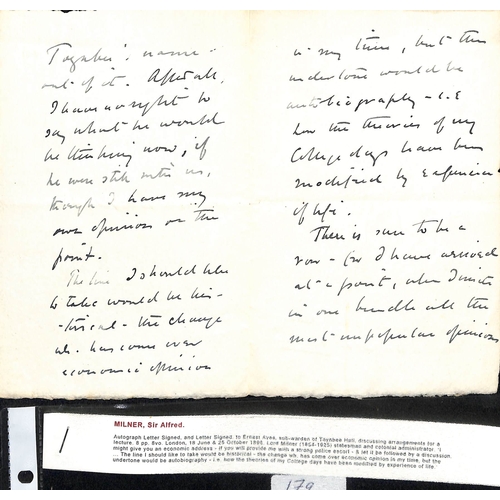 Toynbee's name
out of it. After all,
I have no right to
say what he would
be thinking now, if
he were still with us,
though I have my
own opinion on the
point.
The line I should like
to take would be his-
-torical - the change
wh. has come over
economic opinion
in my time, but the
undertone would be
autobiography - i.e
how the theories of my
College days have been
modified by experience
of life.
There is sure to be a
row - for I have arrived
at a point, when I unite
in one bundle all the
most unpopular opinions
1
MILNER, Sir Alfred.
Autograph Letter Signed, and Letter Signed, to Ernest Aves, sub-warden of Toynbee Hall, discussing arrangements for a
lecture. 8 pp. 8vo. London, 19 June & 25 October 1895. Lord Milner (1854-1925) statesman and colonial administrator. 'I
might give you an economic address - if you will provide me with a strong police escort - & let it be followed by a discussion
... The line I should like to take would be historical - the change wh. has come over economic opinion in my time, but the
undertone would be autobiography - i.e. how the theories of my College days have been modified by experience of life.'
179